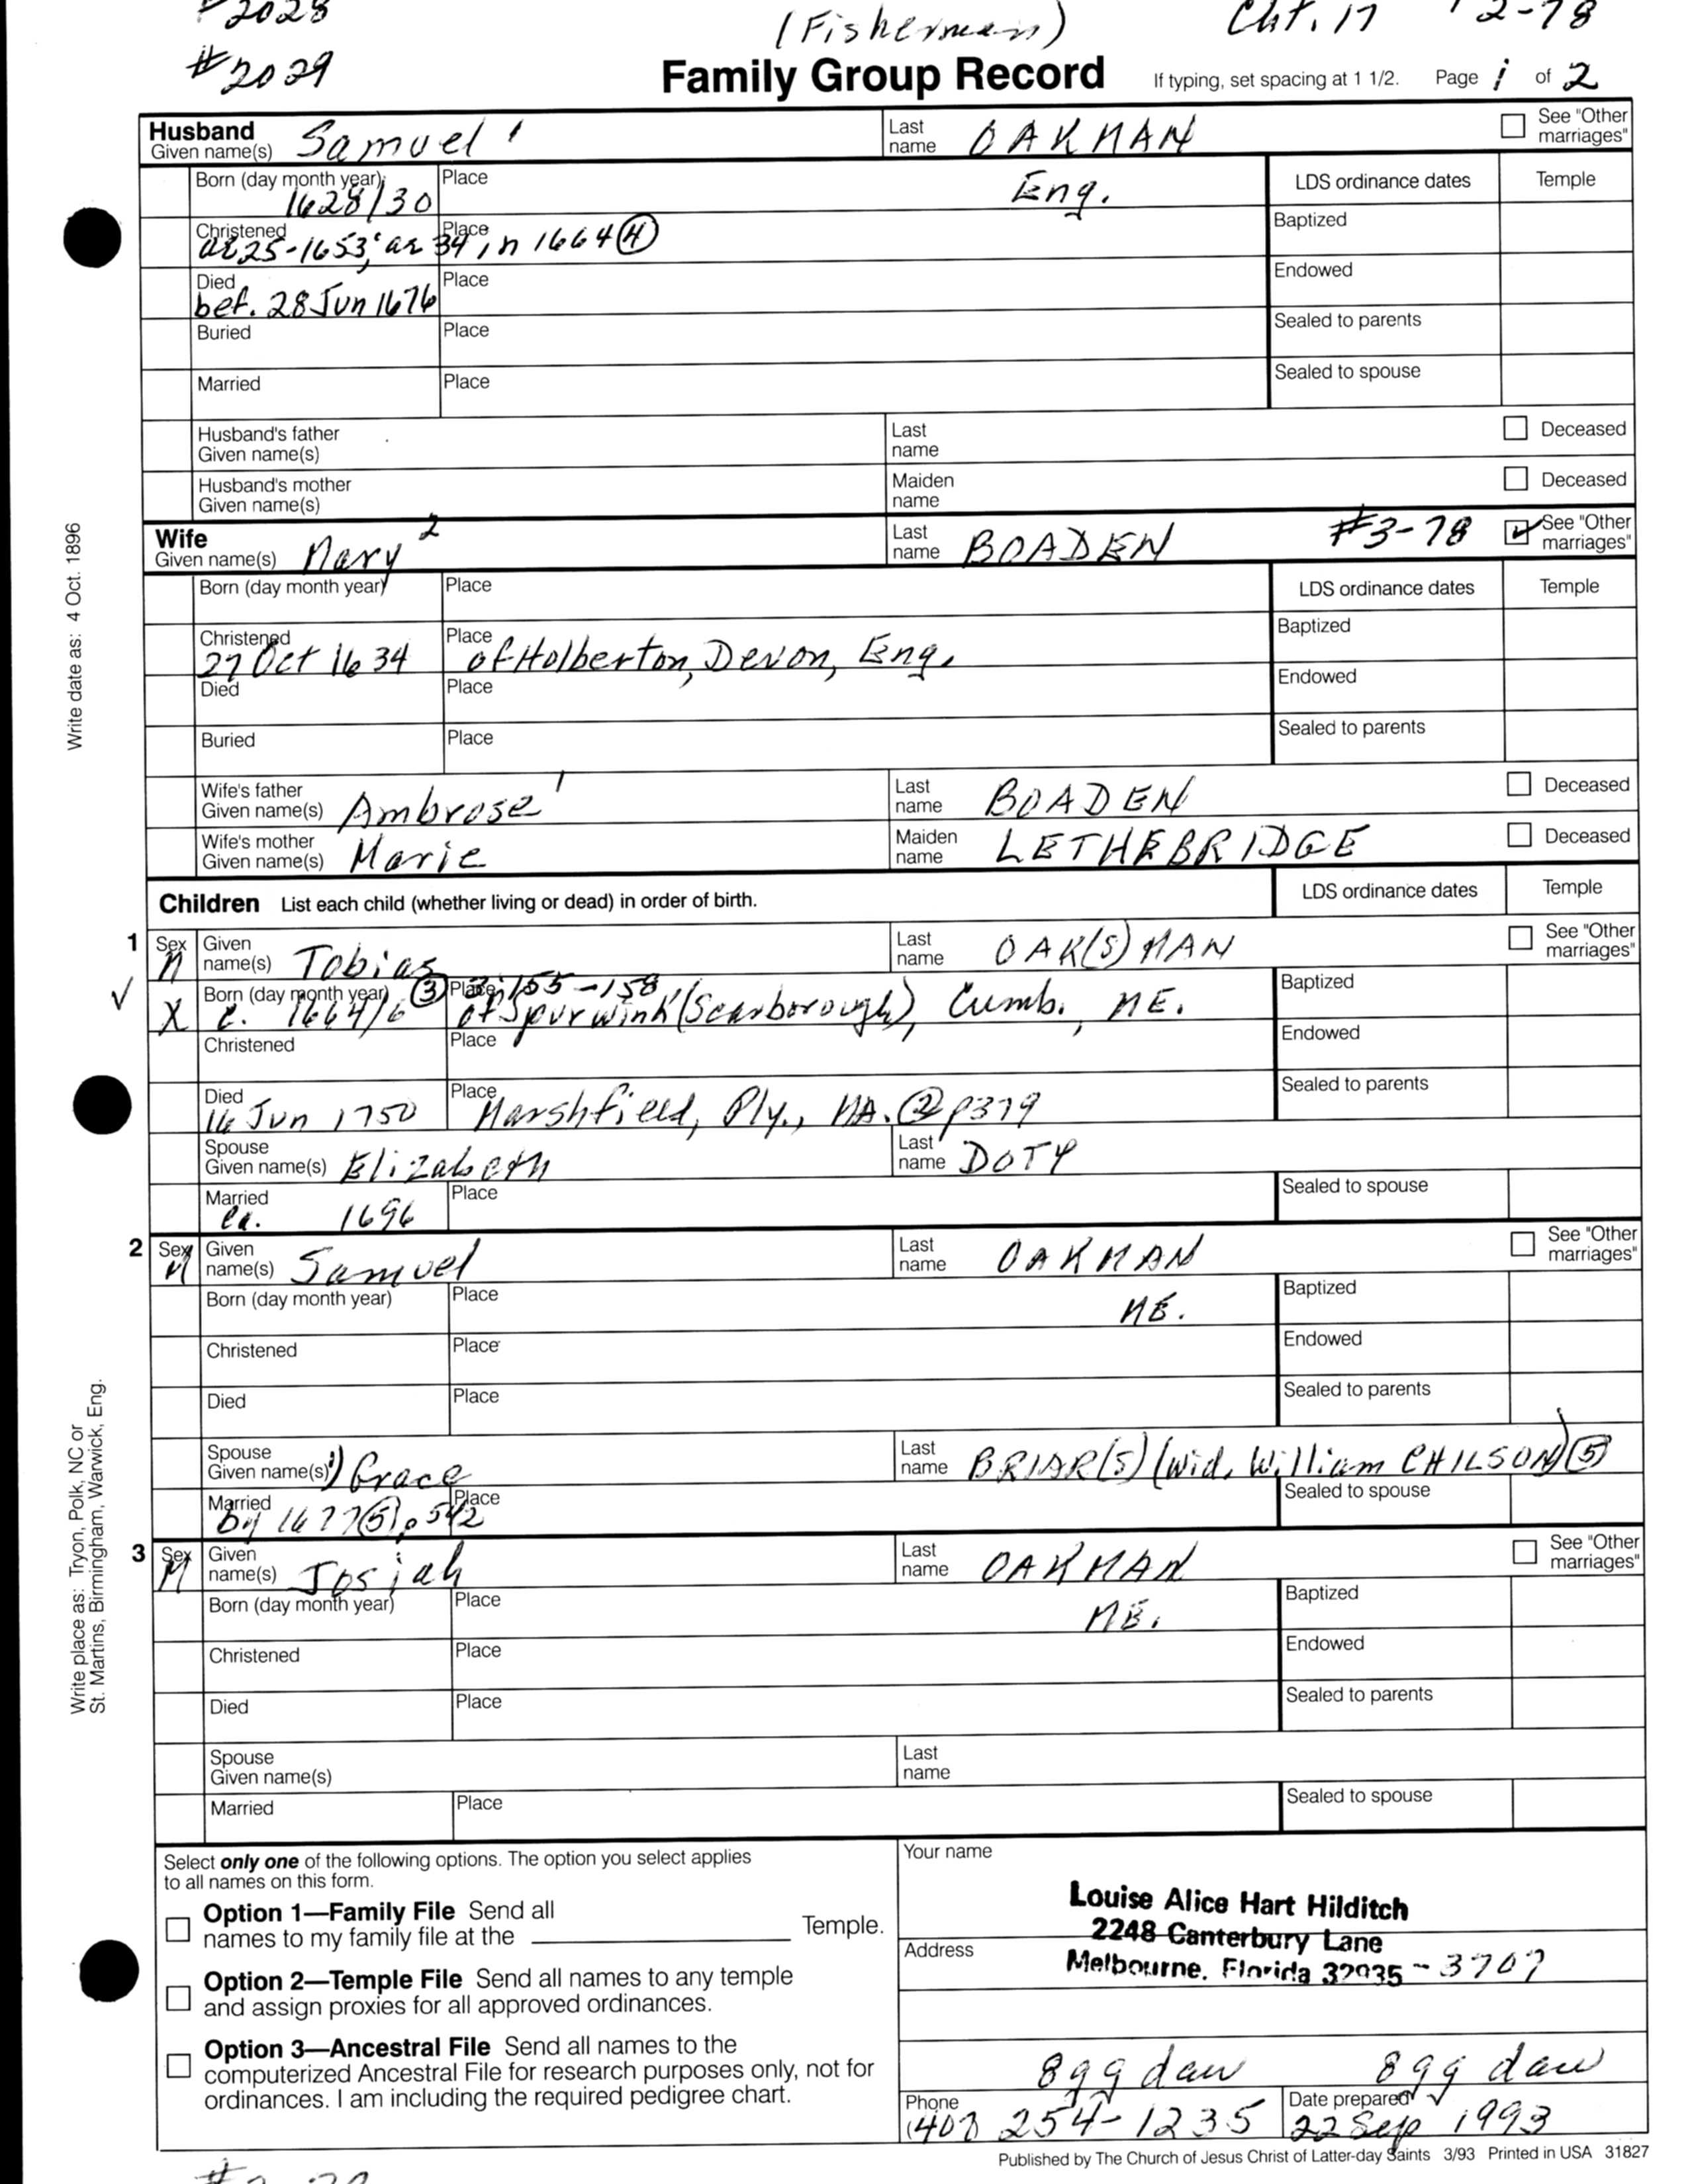 #2029
(Fisherman)
Cht. 17 #2-78
Family Group Record If typing, set spacing at 1 1/2. Page 1 of 2
Husband
Given name(s) Samuel 1 Last name OAKMAN See "Other marriages"
Born (day month year) 1628/30 Place Eng. LDS ordinance dates Temple
Christened ae 25-1653; ae 34 in 1664 (4) Place Baptized
Died bef. 28 Jun 1676 Place Endowed
Buried Place Sealed to parents
Married Place Sealed to spouse
Husband's father Given name(s) Last name Deceased
Husband's mother Given name(s) Maiden name Deceased
Wife
Given name(s) Mary 2 Last name BOADEN #3-78 See "Other marriages"
Born (day month year) Place LDS ordinance dates Temple
Christened 27 Oct 1634 Place of Holberton, Devon, Eng. Baptized
Died Place Endowed
Buried Place Sealed to parents
Wife's father Given name(s) Ambrose 1 Last name BOADEN Deceased
Wife's mother Given name(s) Marie Maiden name LETHEBRIDGE Deceased
Children List each child (whether living or dead) in order of birth. LDS ordinance dates Temple
1 Sex M Given name(s) Tobias Last name OAK(S)MAN See "Other marriages"
X Born (day month year) c. 1664/6 (3) Place 155-158 of Spurwink (Scarborough), Cumb., ME. Baptized
Christened Place Endowed
Died 16 Jun 1750 Place Marshfield, Ply., MA. (2) p379 Sealed to parents
Spouse Given name(s) Elizabeth Last name DOTY
Married ca. 1696 Place Sealed to spouse
2 Sex M Given name(s) Samuel Last name OAKMAN See "Other marriages"
Born (day month year) Place ME. Baptized
Christened Place Endowed
Died Place Sealed to parents
Spouse Given name(s) 1) Grace Last name BRIAR(S) (wid. William CHILSON) (5)
Married by 1677 (5) p 542 Place Sealed to spouse
3 Sex M Given name(s) Josiah Last name OAKMAN See "Other marriages"
Born (day month year) Place ME. Baptized
Christened Place Endowed
Died Place Sealed to parents
Spouse Given name(s) Last name
Married Place Sealed to spouse
Select only one of the following options. The option you select applies
to all names on this form.
Option 1—Family File Send all
names to my family file at the Temple.
Option 2—Temple File Send all names to any temple
and assign proxies for all approved ordinances.
Option 3—Ancestral File Send all names to the
computerized Ancestral File for research purposes only, not for
ordinances. I am including the required pedigree chart.
Your name
Louise Alice Hart Hilditch
2248 Canterbury Lane
Address
Melbourne, Florida 32935 - 3707
899 daw 899 daw
Phone (407 254-1235 Date prepared 22 Sep 1993
Published by The Church of Jesus Christ of Latter-day Saints 3/93 Printed in USA 31827
Write date as: 4 Oct. 1896
Write place as: Tryon, Polk, NC or
St. Martins, Birmingham, Warwick, Eng.